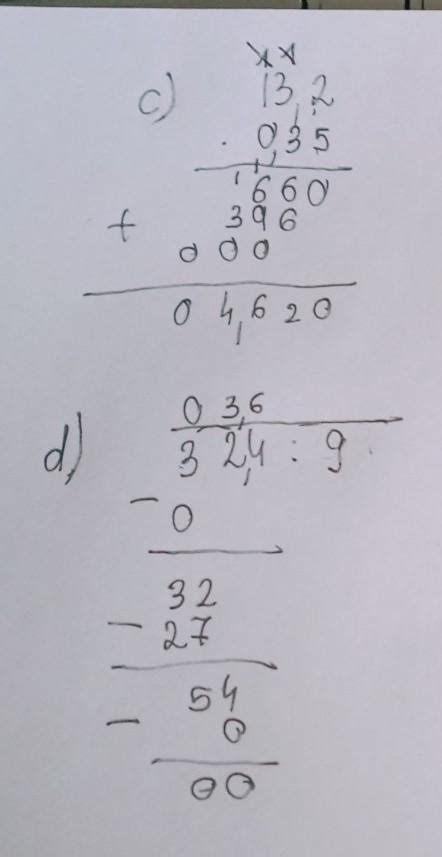 c) 13,2
· 0,35
660
+ 396
000
04,620
d) 03,6
32,4 : 9
- 0
32
- 27
54
- 0
00